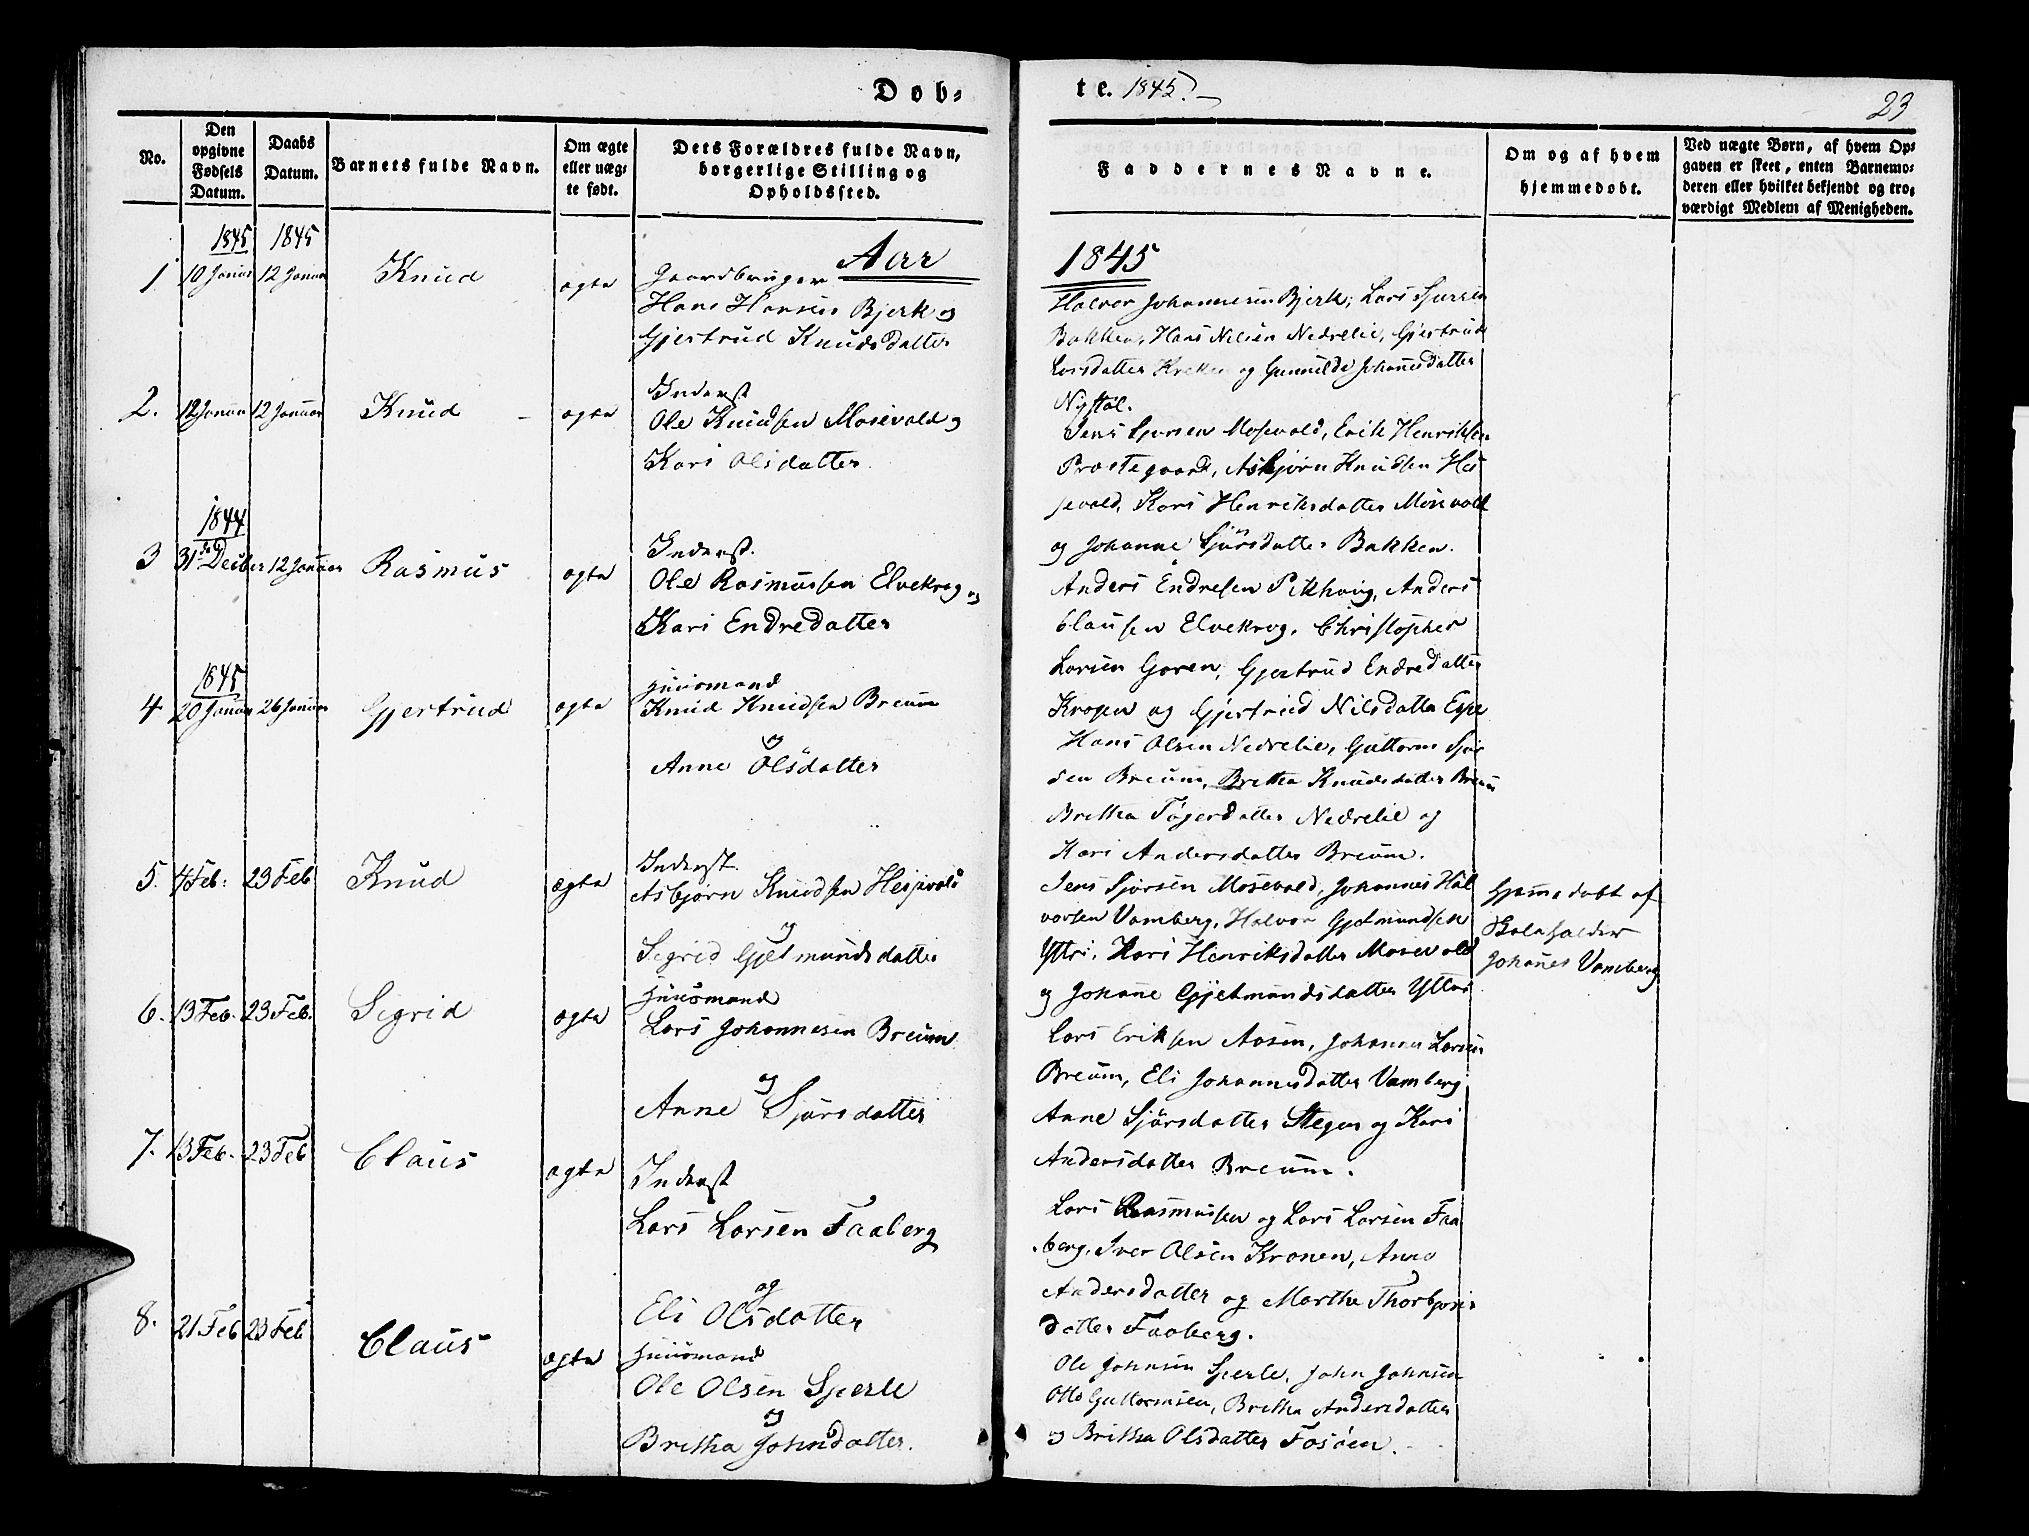 Døb-
te. 1845.
23
No.
Den
opgivne
Fødsels
Datum.
Daabs
Datum.
Barnets fulde Navn.
Om ægte
eller uæg-
te født.
Dets Forældres fulde Navn,
borgerlige Stilling og
Opholdssted.
Faddernes Navne.
Om og af hvem
hjemmedøbt.
Ved uægte Børn, af hvem Op-
gaven er skeet, enten Barnemo-
deren eller hvilket bekjendt og tro-
værdigt Medlem af Menigheden.
1845 1845
Aar 1845
1 10 Januar 12 Januar Knud ægte Gaardbruger
Hans Hansen Bjerk og
Gjertrud Knudsdatter
Halvor Johannesen Bjerk, Lars Sjursen
Bakken, Hans Nilsen Nedrelie, Gjertrud
Larsdatter og Gunnilde Johanesdatter
Nystøl.
2. 12 Januar 12 Januar Knud ægte Inderst
Ole Knudsen Mosevold og
Kari Olsdatter
Jens Sjursen Mosevold, Erik Henriksen
Prestegaard, Asbjørn Knudsen Hes
jevold, Kari Henriksdatter Mosevold
og Johanne Sjursdatter Bakken.
1844
3 31te Decber 12 Januar Rasmus ægte Inderst.
Ole Rasmussen Elvekrog og
Kari Endredatter
Anders Endresen Vikhovig, Anders
Clausen Elvekrog, Christopher
Larsen Goren, Gjertrud Endredatter
Kroken og Gjertrud Nilsdatter Espe
1845
4 20 Januar 26 Januar Gjertrud ægte Huusmand
Knud Knudsen Breum
og
Anne Olsdatter
Hans Olsen Nedrelie, Guttorm Sjur
sen Breum, Britha Knudsdatter Breum
Britha Tøgersdatter Nedrelie og
Kari Andersdatter Breum.
5. 4 Feb: 23 Feb Knud ægte Inderst.
Asbjørn Knudsen Hesjevold
og
Sigrid Gjetmundsdatter
Jens Sjørsen Mosevold, Johannes Hal
vorsen Vamberg, Halvor Gjetmundsen
Yttri, Kari Henriksdatter Mosevold
og Johane Gjetmundsdatter Yttri
Hjemmedøbt af
Skoleholder
Johanes Vamberg
6. 13 Feb. 23 Feb. Sigrid ægte Huusmand
Lars Johannesen Breum
og
Anne Sjursdatter
Lars Eriksen Aasen, Johannes Larsen
Breum, Eli Johannesdatter Vamberg
Anne Sjørsdatter Stegen og Kari
Andersdatter Breum.
7. 13 Feb. 23 Feb Claus ægte Inderst
Lars Larsen Faaberg
og
Eli Olsdatter
Lars Rasmussen og Lars Larsen Faa
berg, Iver Olsen Kronen, Anna
Andersdatter og Marthe Thorbjørns
datter Faaberg.
8. 21 Feb 23 Feb Claus ægte Huusmand
Ole Olsen Sperle
og
Britha Johnsdatter.
Ole Johnsen Sperle, John Johnsen
Otto Guttormsen, Britha Andersdatter
og Britha Olsdatter Fosøen.